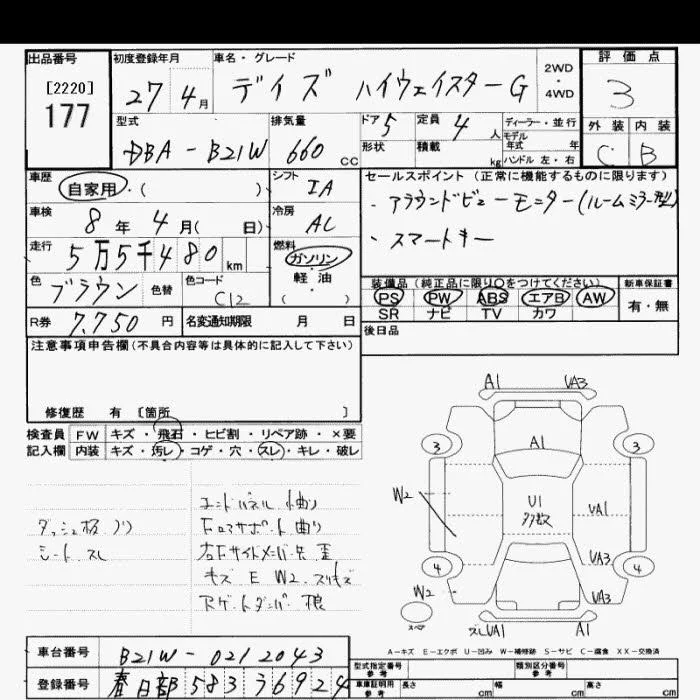 出品番号
[2220]
177
初度登録年月
27 4月
車名・グレード
デイズ ハイウェイスターG
2WD
・
4WD
評価点
3
外装 内装
C B
型式
DBA-B21W
排気量
660 cc
ドア 5
形状
定員 4 人
積載 kg
ディーラー・並行
モデル
年式 年
ハンドル 左・右
車歴
自家用・( )
シフト
IA
セールスポイント (正常に機能するものに限ります)
・アラウンドビューモニター(ルームミラー型)
・スマートキー
車検
8年 4月( 日)
冷房
AC
走行
5万5千480 km
燃料
ガソリン
軽油
( )
色
ブラウン
色替
色コード
C12
装備品 (純正品に限り○をつけてください)
PS PW ABS エアB AW
SR ナビ TV カワ
新車保証書
有・無
R券 7,750 円
名変通知期限 月 日
後日品
注意事項申告欄 (不具合内容等は具体的に記入して下さい)
修復歴 有 [箇所 ]
検査員
記入欄
FW キズ・飛石・ヒビ割・リペア跡・×要
内装 キズ・汚レ・コゲ・穴・スレ・キレ・破レ
ダッシュ板 ノリ
シート スレ
エンドパネル 曲り
Fロアサポート曲り
右Fサイドメンバー先 歪
キズ E W2 スリキズ
Rゲートダンパー 痕
A1 UA3
3 3
A1
W2
U1
多数
UA1
UA3
4 4
W2 UA3
スペア
スレUA1 A1
A-キズ E-エクボ U-凹み W-補修跡 S-サビ C-腐食 XX-交換済
車台番号
B21W-0212043
登録番号
春日部 583 ス6924
型式指定番号
参考
類別区分番号
参考
車庫証明用
参考
長さ cm 幅 cm 高さ cm